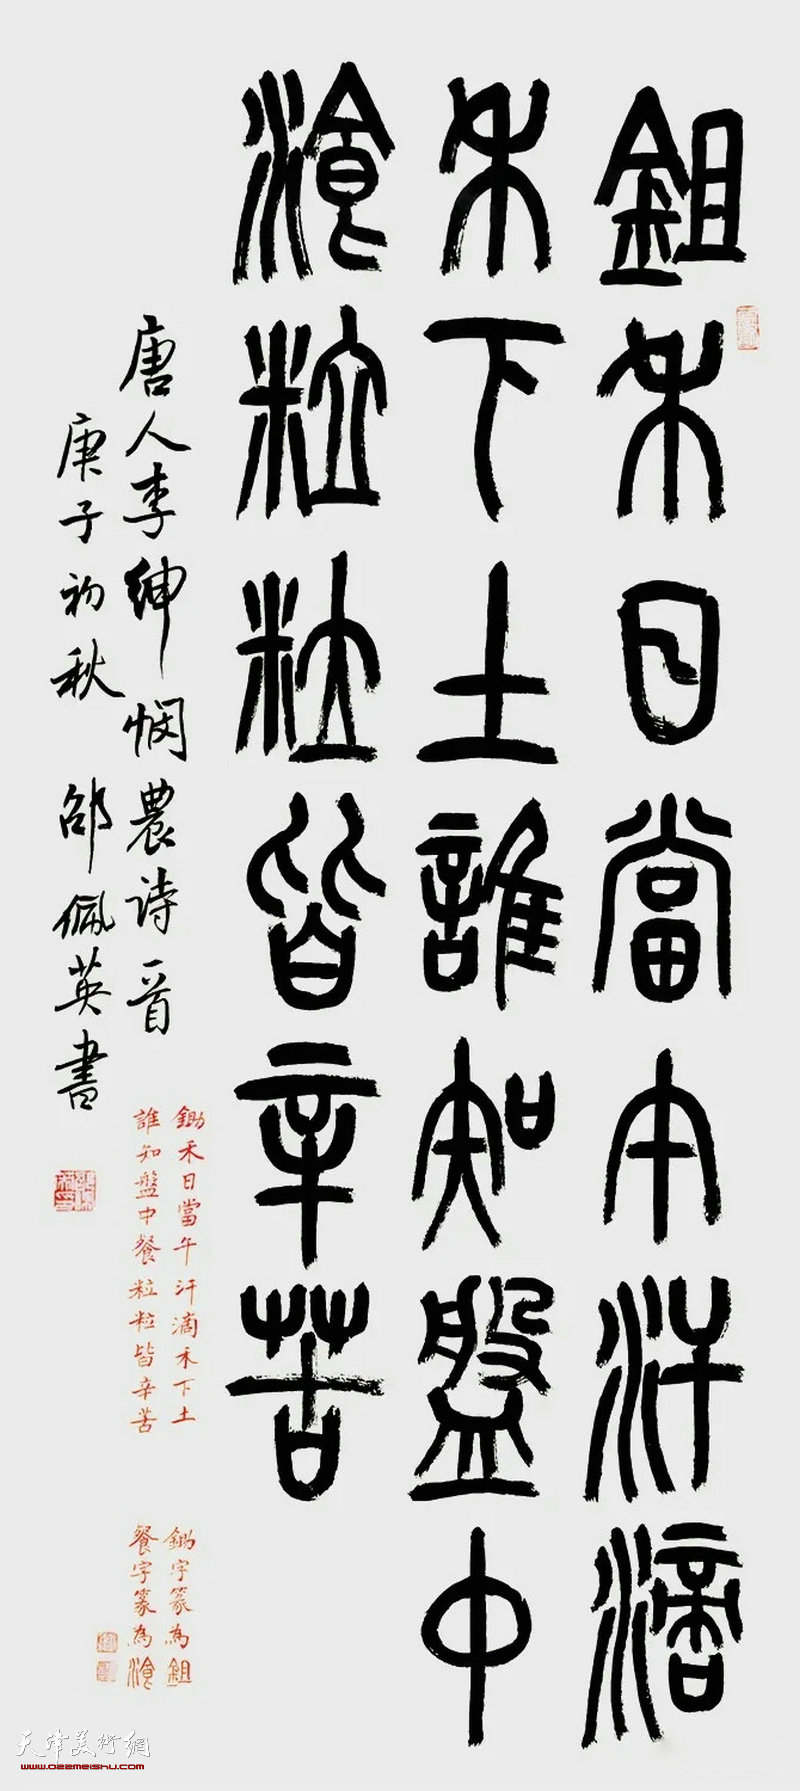 鉏禾日當午汗滴
禾下土誰知盤中
湌粒粒皆辛苦
唐人李紳憫農詩一首
庚子初秋 邵佩英書
鋤禾日當午汗滴禾下土
誰知盤中餐粒粒皆辛苦
鋤字篆為鉏
餐字篆為湌
天津美術網
www.022meishu.com